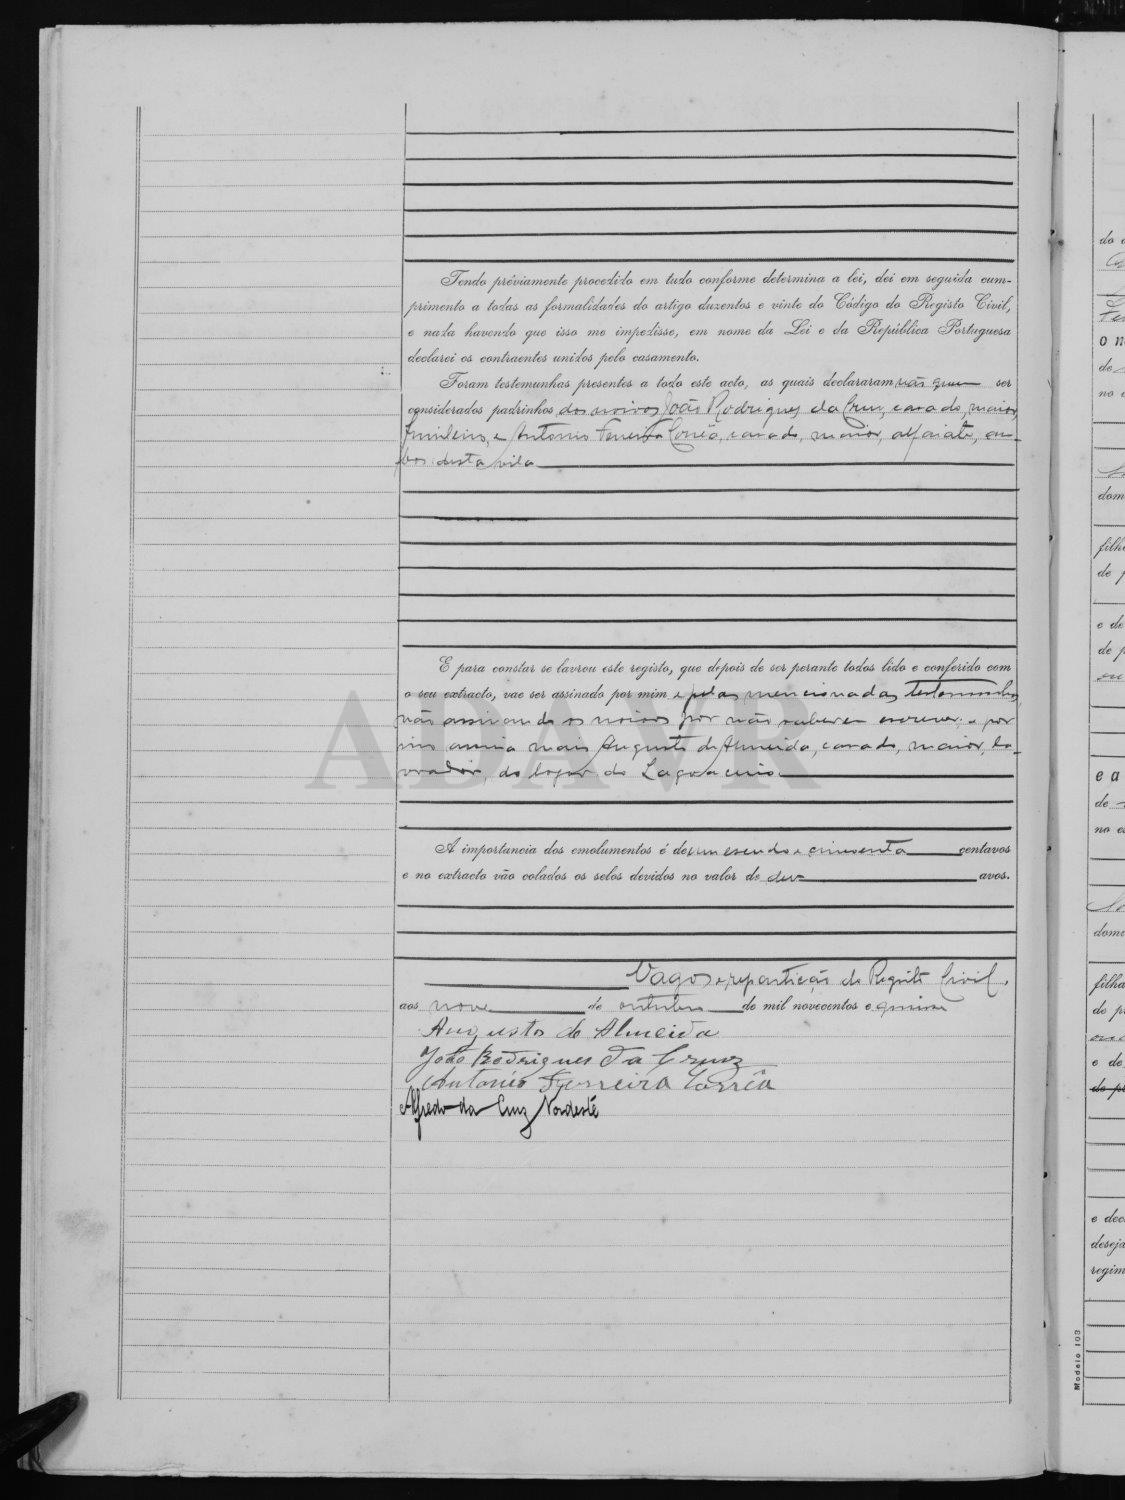 Tendo préviamente procedido em tudo conforme determina a lei, dei em seguida cum-
primento a todas as formalidades do artigo duzentos e vinte do Código do Registo Civil,
e nada havendo que isso me impedisse, em nome da Lei e da República Portuguesa
declarei os contraentes unidos pelo casamento.
Foram testemunhas presentes a todo este acto, as quais declararam não querem ser
considerados padrinhos dos noivos João Rodrigues da Cruz, casado, maior,
funileiro, e Antonio Ferreira Corrêa, casado, maior, alfaiate, am-
bos desta vila
E para constar se lavrou este registo, que depois de ser perante todos lido e conferido com
o seu extracto, vae ser assinado por mim e pelas mencionadas testemunhas,
não assinando os noivos por não saberem escrever, e por
isso assina mais Augusto de Almeida, casado, maior, la-
vrador, do logar do
A importancia dos emolumentos é de um escudo e cincoenta centavos
e no extracto vão colados os selos devidos no valor de dez avos.
Vagos e repartição do Registo Civil,
aos nove de outubro de mil novecentos e quinze
Augusto de Almeida
João Rodrigues da Cruz
Antonio Ferreira Corrêa
Alfredo da Cruz Nordeste
ADAVR
do
o n
de
no
dom
filh
de p
e de
de p
e a
de
no e
dome
filha
de p
e de
de p
e dec
deseja
regim
Modelo 103